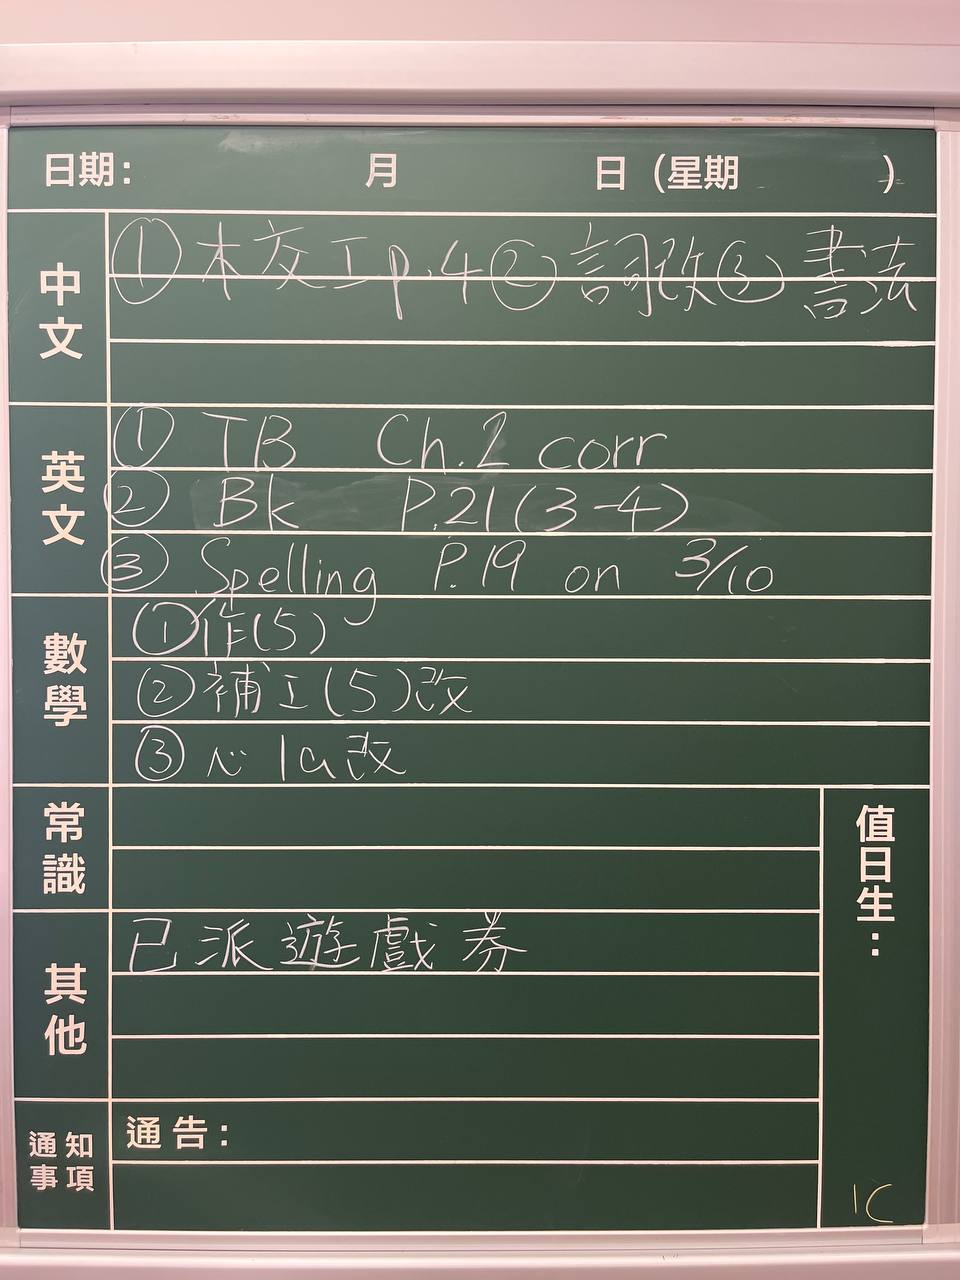 日期： 月 日 (星期 )
中文
① 木交工p.4 ② 詞改 ③ 書法
英文
① TB Ch.2 corr
② Bk P.21 (3-4)
③ Spelling P.19 on 3/10
數學
① 作(5)
② 補工(5)改
③ 心1a改
常識
值日生：
其他
已派遊戲券
通知事項
通告：
1C